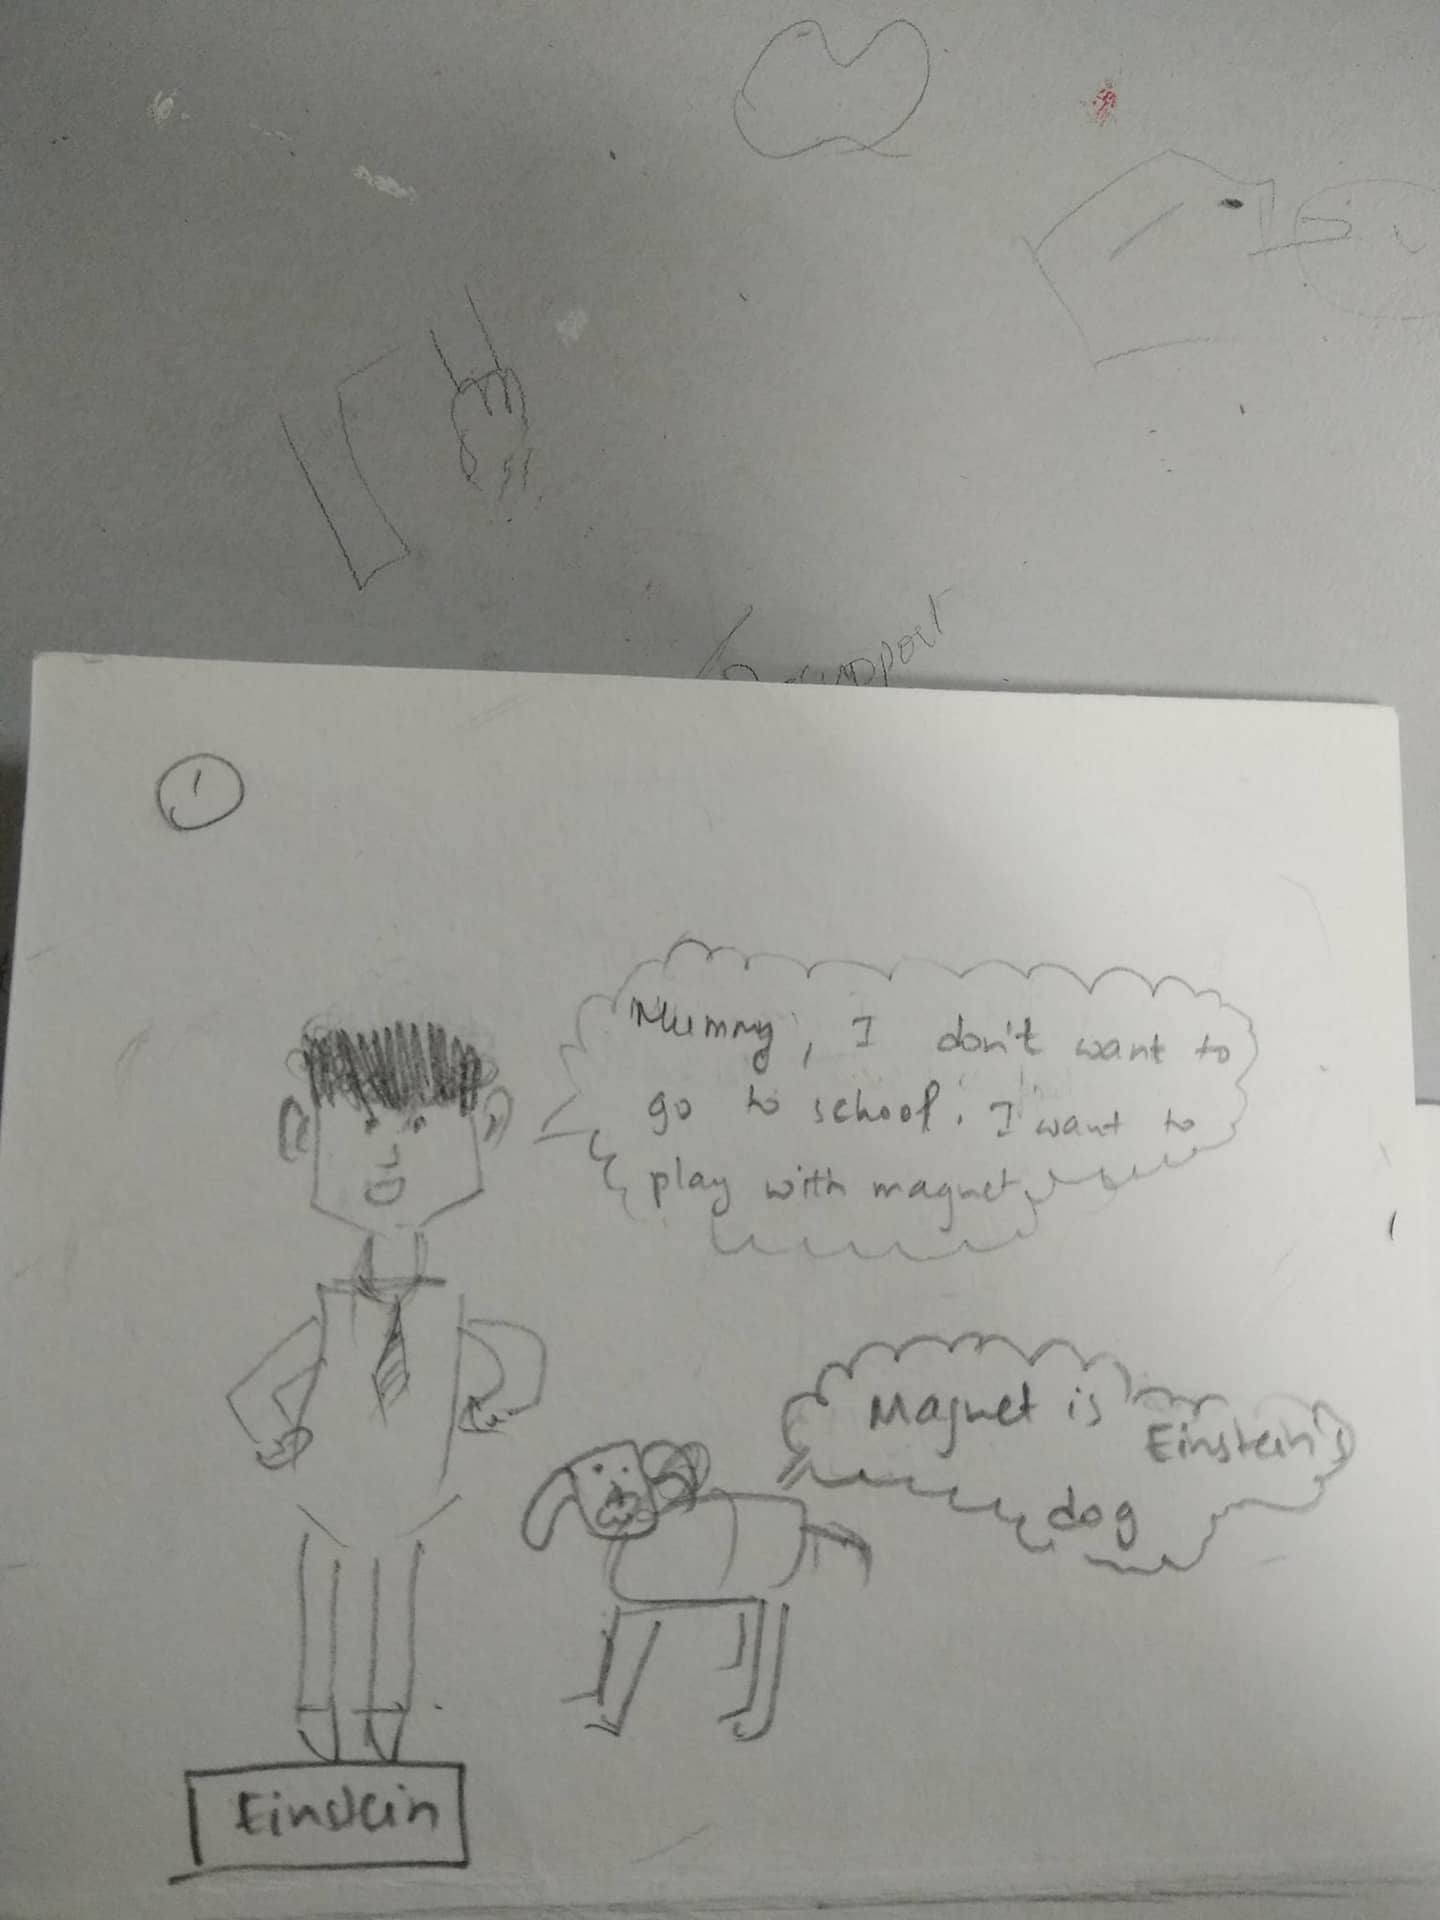 support
1
Mummy, I don't want to
go to school. I want to
play with magnet
Magnet is Einstein's
dog
Einstein